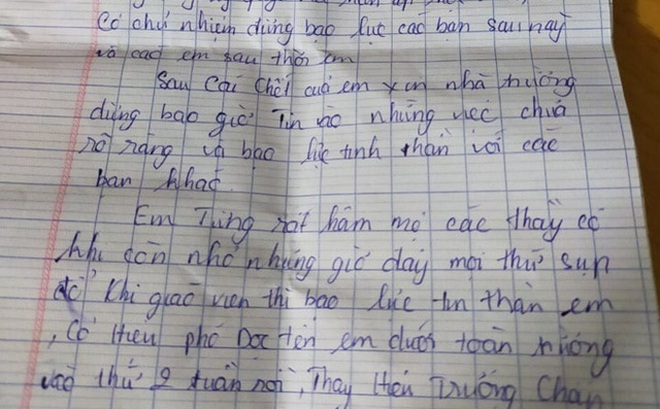 Cô chủ nhiệm đừng bạo lực các bạn sau này
và các em sau thời em
Sau cái chết của em xin nhà trường
đừng bao giờ tin vào những việc chưa
rõ ràng và bạo lực tinh thần với các
bạn khác
Em Từng rất hâm mộ các thầy cô
khi còn nhỏ nhưng giờ đây mọi thứ sụp
đổ khi giáo viên thì bạo lực tin thần em
, Cô Hiệu phó Đọc tên em dưới toàn trường
vào thứ 2 tuần rồi, Thầy Hiệu Trưởng